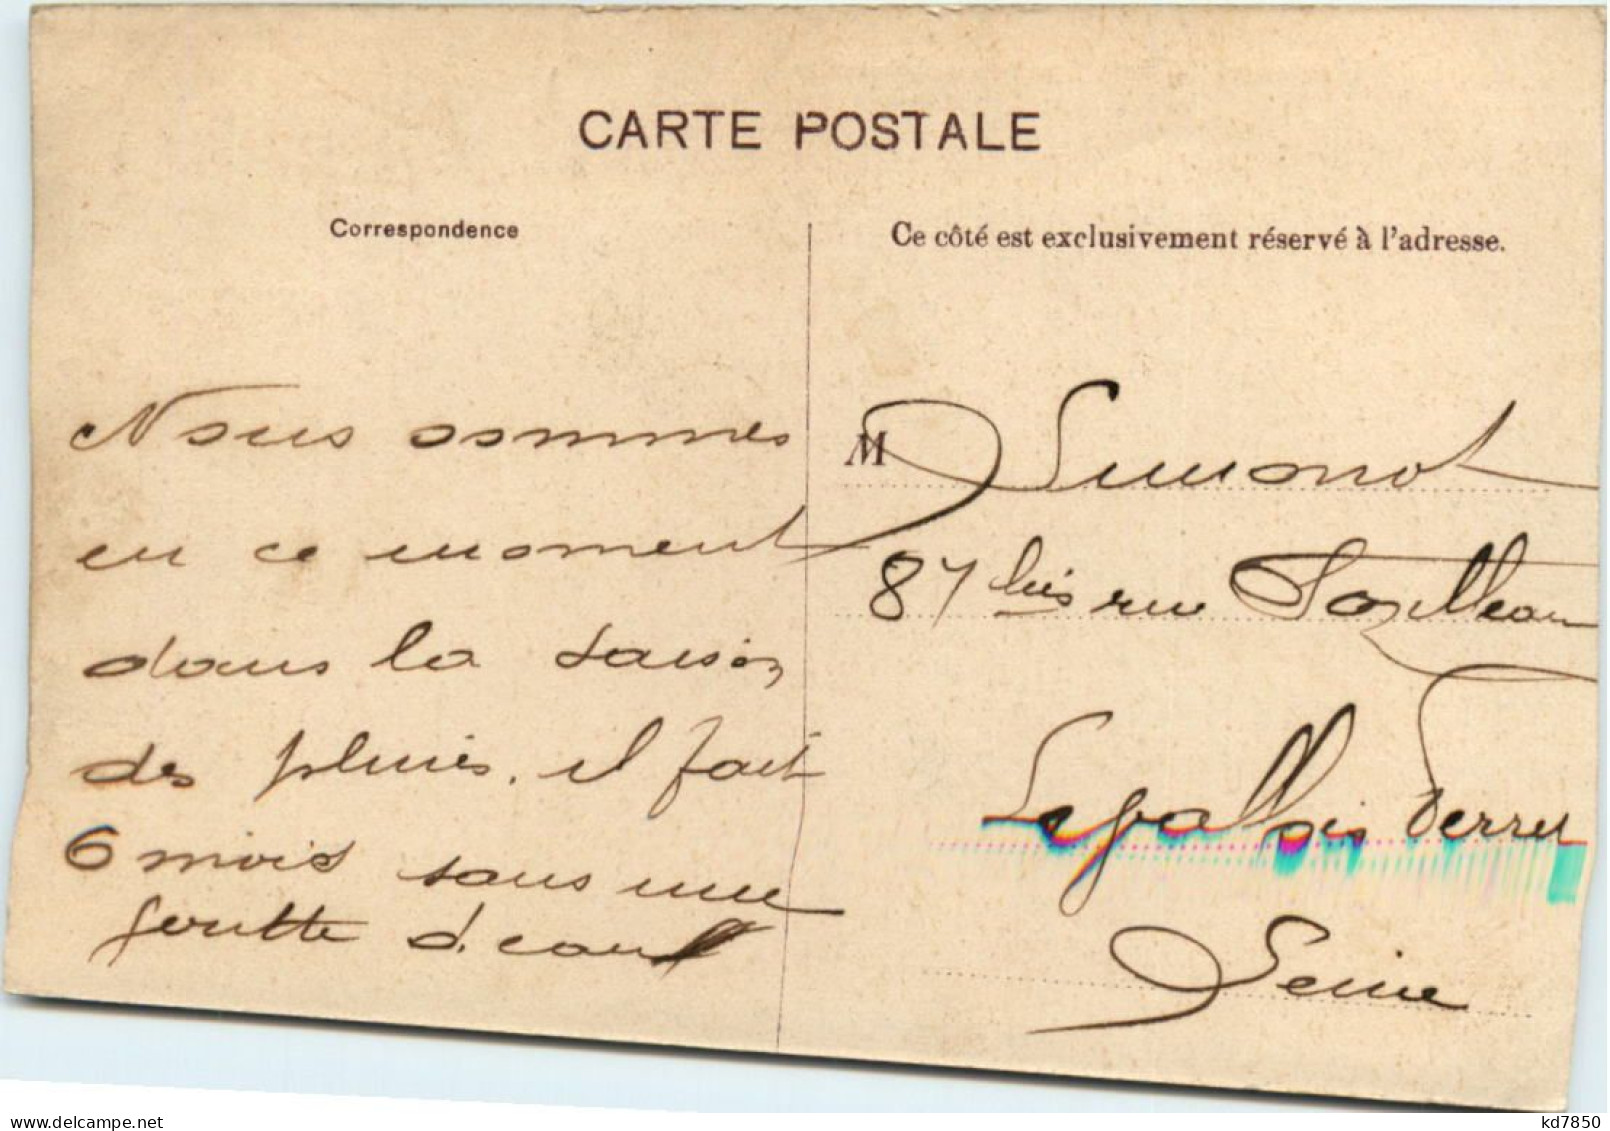 CARTE POSTALE
Correspondence
Ce côté est exclusivement réservé à l'adresse.
Nous sommes
en ce moment
dans la saison
des pluies. il fait
6 mois sans une
goutte d'eau
M Simonot
87 bis rue
Levallois Perret
Seine
www.delcampe.net
kd7850